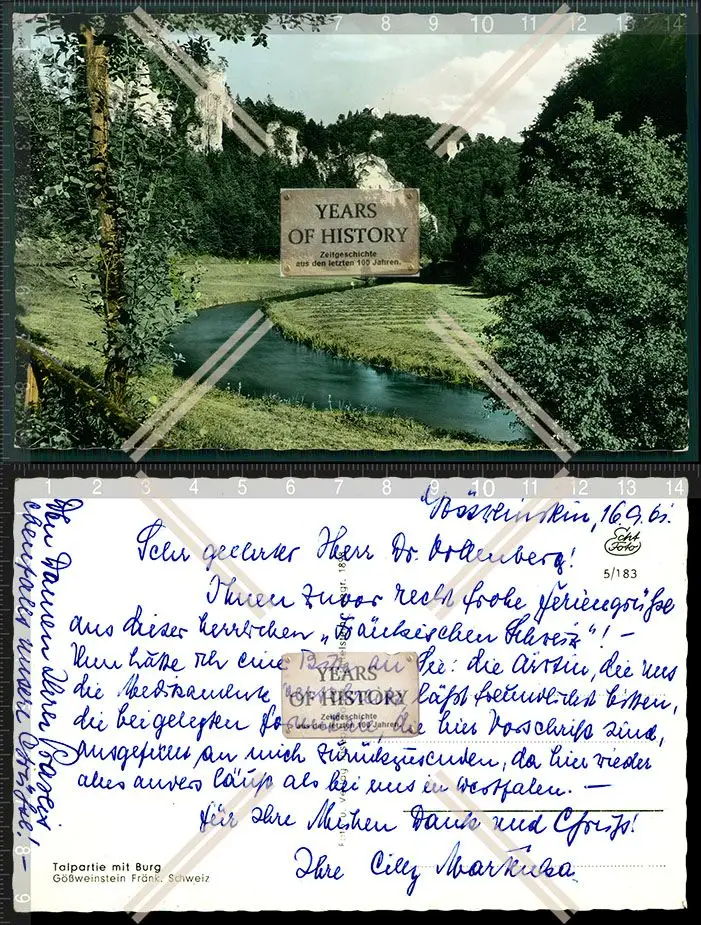 YEARS
OF HISTORY
Zeitgeschichte
aus den letzten 100 Jahren.
Gössweinstein, 16.9.61.
Echt
Foto
5/183
Sehr geehrter Herr Dr.
Ihnen zuvor recht frohe Feriengrüße
aus dieser herrlichen „Fränkischen Schweiz"! –
Nun hätte ich eine Bitte an Sie: die Ärztin, die uns
die Medikamente läßt freundlichst bitten,
die beigelegten die hier Vorschrift sind,
ausgefüllt an mich zurückzusenden, da hier wieder
alles anders läuft als bei uns in Westfalen. –
Für Ihre Mühen Dank und Gruß!
Ihre Cilly
Den Damen Ihrer Praxis
ebenfalls unsere Grüße! –
YEARS
OF HISTORY
Zeitgeschichte
aus den letzten 100 Jahren.
Talpartie mit Burg
Gößweinstein Fränk. Schweiz